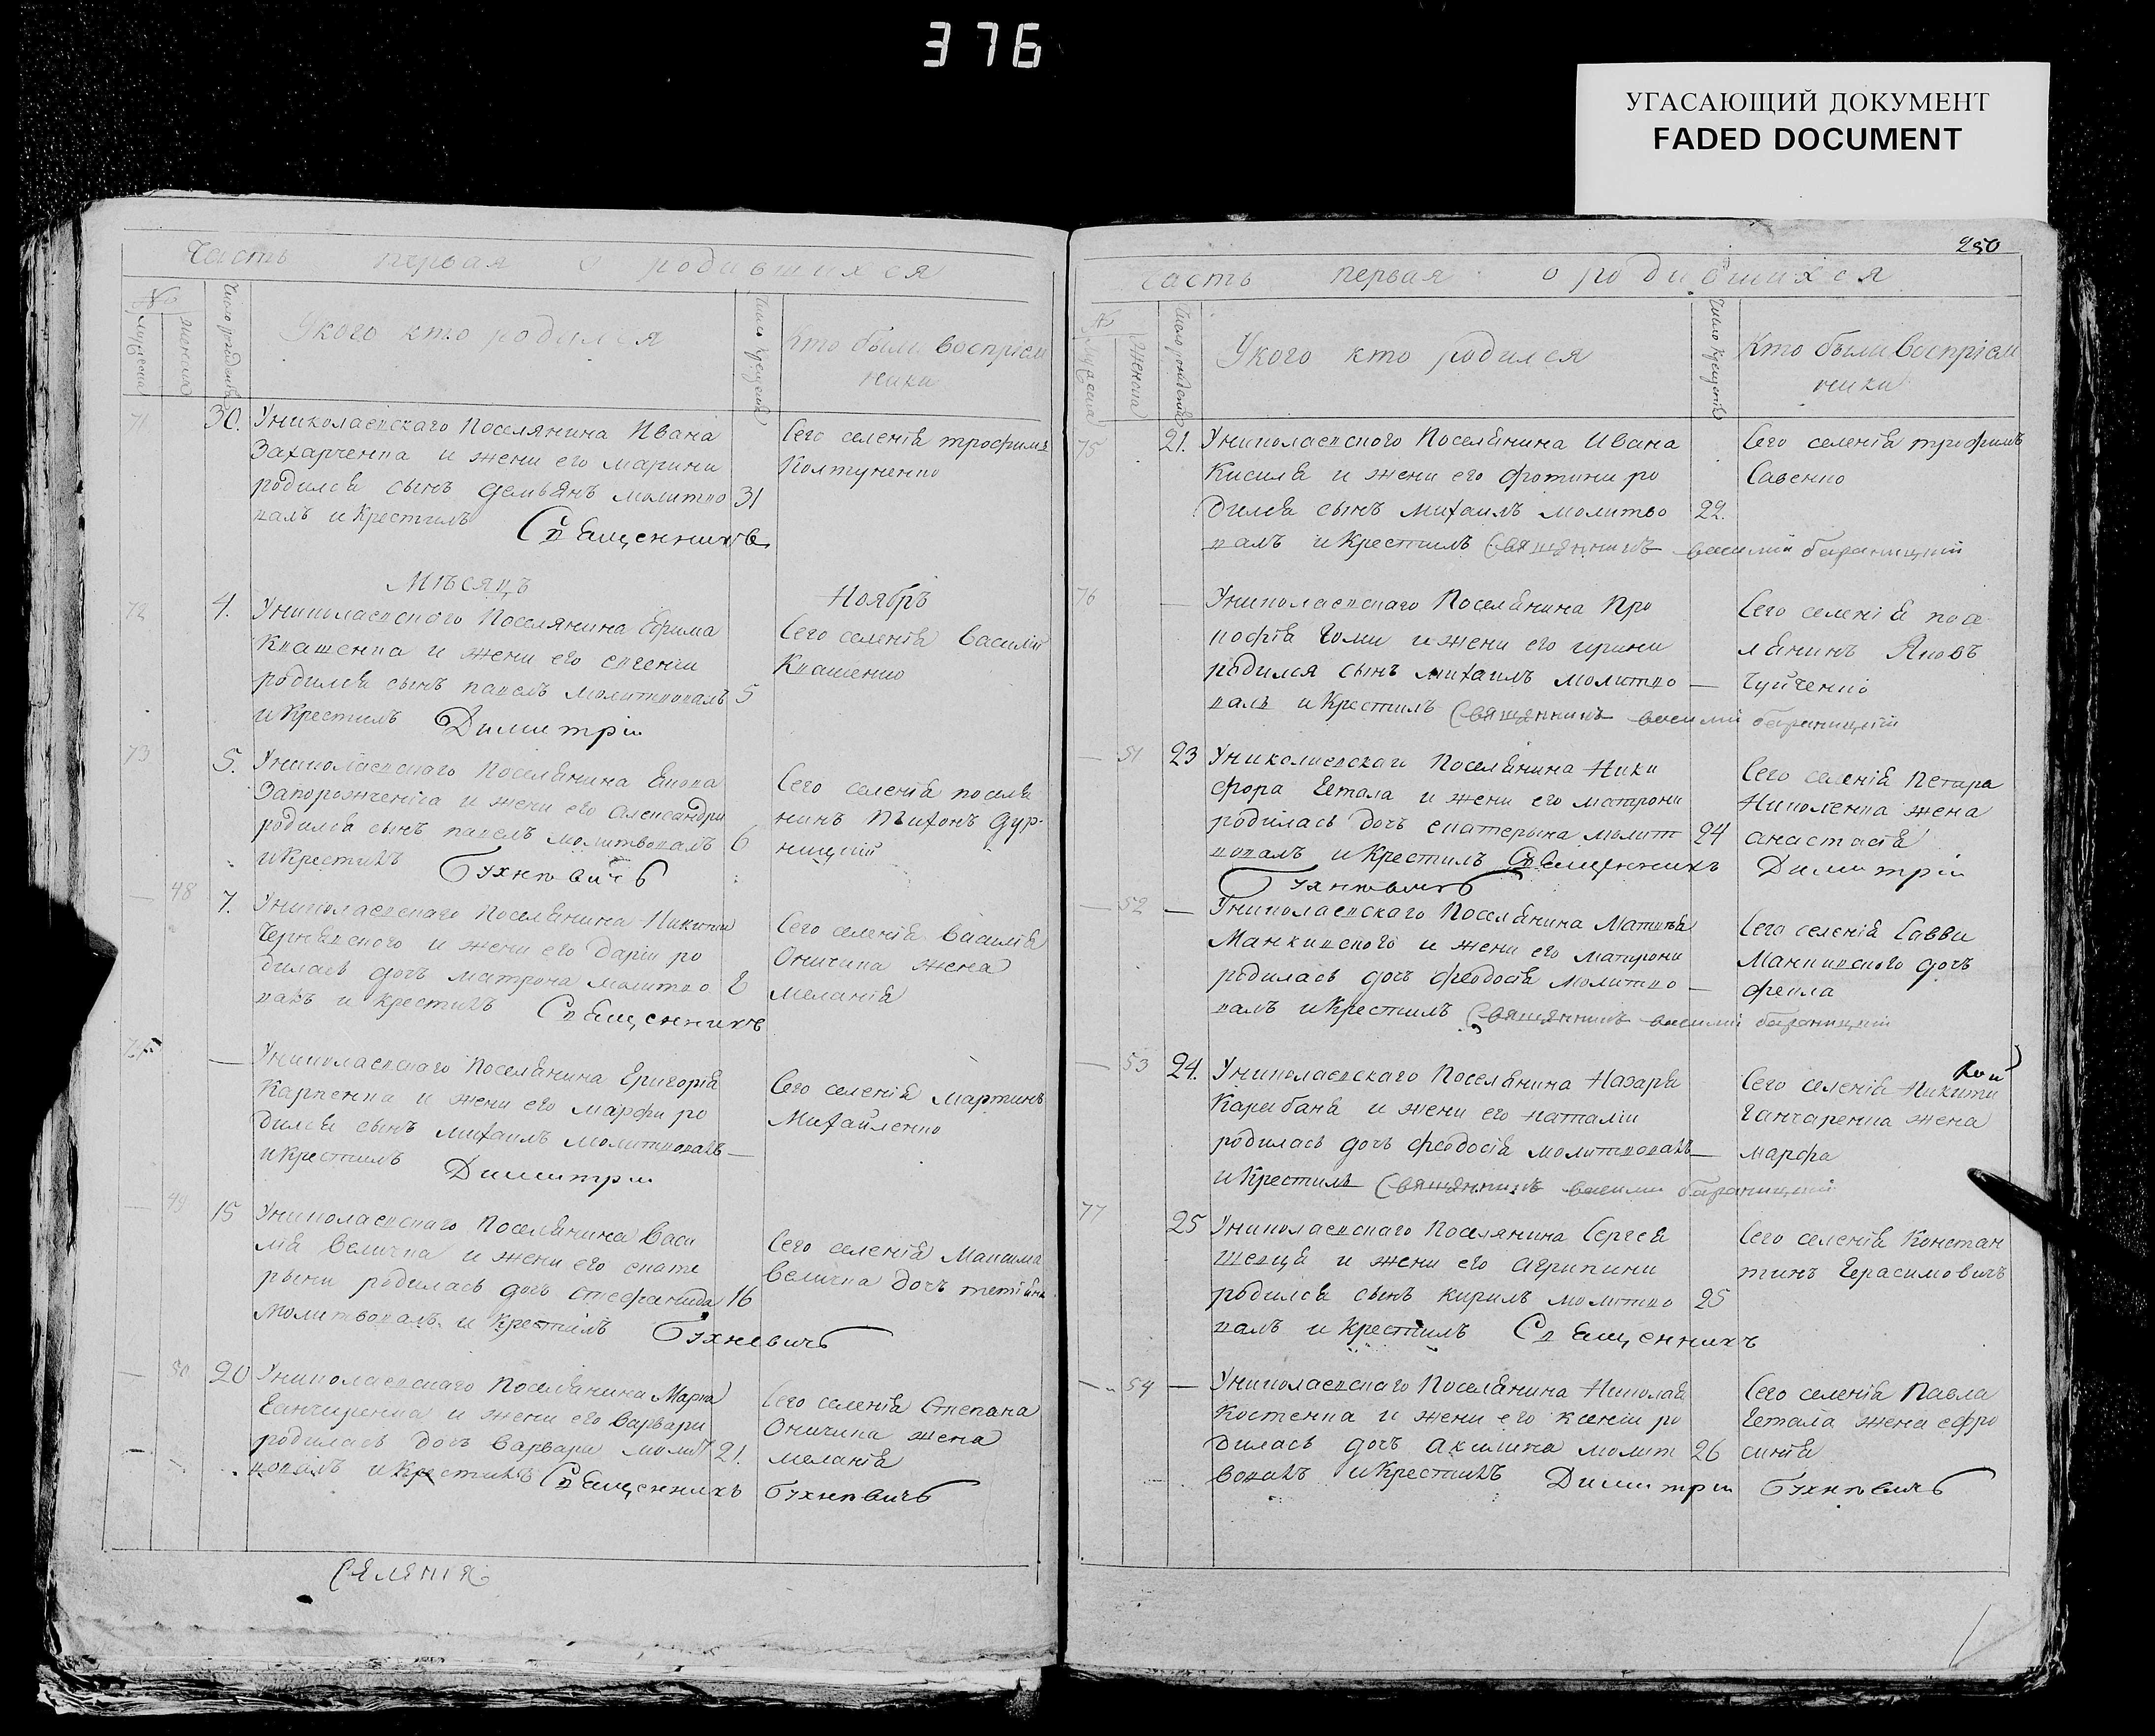 376
УГАСАЮЩИЙ ДОКУМЕНТ
FADED DOCUMENT
Часть первая о родившихся
№
мужеска
женска
Число рождения
Укого кто родился
Число крещения
Кто были воспріем
ники
71
30.
Униколаевскаго Поселянина Ивана
Захарченка и жени его марини
родился сынъ Демьянъ молитво
31
валъ и Крестилъ Священникъ
Сего селенія трофимъ
Колтуненко
Мѣсяцъ Ноябръ
72
4.
Униколаевского Поселянина Ефима
Квашенка и жени его евгеніи
родился сынъ павелъ молитвовалъ
5
и Крестилъ Димитрій
Сего селенія Василій
Квашенко
73
5.
Униколаевскаго Поселянина
Запорожченка и жени его Александри
родился сынъ павелъ молитвовалъ
6
и Крестилъ Бухневичъ
Сего селенія поселя
нинъ Тихонъ Дур-
ницкій
48
7.
Униколаевскаго Поселянина Никити
Чернявского и жени его Даріи ро
дилась дочъ матрона молитво
8
валъ и крестилъ Священникъ
Сего селенія Василія
Оничина жена
меланія
74
Униколаевскаго Поселянина Григорія
Карпенка и жени его марфи ро
дился сынъ михаилъ молитвовалъ
и Крестилъ Димитрій
Сего селенія мартинъ
Михайленко
49
15
Униколаевскаго Поселянина Васи
лія Величка и жени его екате
рыни родилась дочъ стефанида
16
молитвовалъ и Крестилъ Бухневичъ
Сего селенія Максима
Величка дочъ
50
20
Униколаевскаго Поселянина Марка
Ганчаренка и жени его Варвари
родилась дочъ Варвара молит
21.
вовалъ и Крестилъ Священникъ Бухневичъ
Сего селенія Степана
Оничина жена
меланія
Селенія
250
Часть первая о родившихся
№
мужеска
женска
Число рожденія
Укого кто родился
Число крещенія
Кто были Воспріем
ники
75
21.
Униколаевского Поселянина Ивана
Кисиля и жени его фотини ро
дился сынъ михаилъ молитво
22.
валъ и Крестилъ Священникъ василій бараницкій
Сего селенія трофимъ
Савенко
76
Униколаевскаго Поселянина Про
кофія Гоми и жени его ирини
родился сынъ михаилъ молитво
валъ и Крестилъ Священникъ василій бараницкій
Сего селенія посе
лянинъ Яковъ
Чуйченко
51
23
Униколаевскаго Поселянина Ники
фора Гетала и жени его матрони
родилась дочъ екатерына молит
24
вовалъ и Крестилъ Священникъ Димитрій
Бухневичъ
Сего селенія Петара
Николенка жена
анастасія
52
Униколаевскаго Поселянина Матвѣя
Манкивского и жени его матрони
родилась дочъ феодосія молитво
валъ и Крестилъ Священникъ василій бараницкій
Сего селенія Савви
Манкивского дочъ
фекла
53
24.
Униколаевскаго Поселянина Назаря
Карабаня и жени его наталіи
родилась дочъ феодосія молитвовалъ
и Крестилъ Священникъ василій бараницкій
Сего селенія Никити
Ганчаренка жена
марфа
77
25
Униколаевскаго Поселянина Сергея
Шевця и жени его агрипини
родился сынъ кирилъ молитво
25
валъ и Крестилъ Священникъ
Сего селенія Констан
тинъ Герасимовичъ
54
Униколаевскаго Поселянина Николая
Костенка и жени его ксеніи ро
дилась дочъ Акилина молит
26
вовалъ и Крестилъ Димитрій Бухневичъ
Сего селенія Павла
Гетала жена ефро
синія